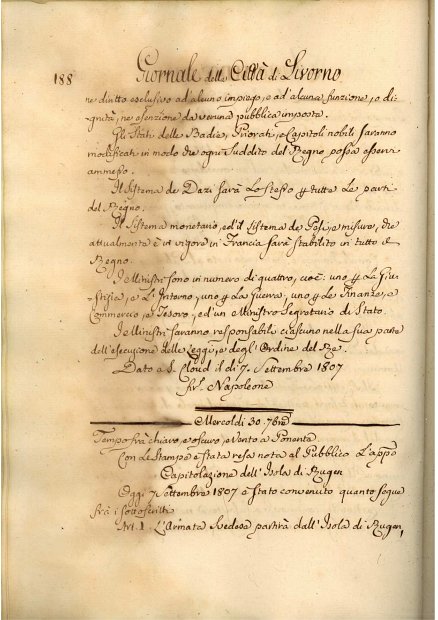 188
Giornale della Città di Livorno
ne diritto esclusivo ad'alcuno impiego, e ad'alcuna funzione, o di-
gnità, ne esenzione da veruna pubblica imposta.
Gli Stati delle Badie, Priorati, e Capitoli nobili saranno
modificati in modo che ogni Suddito del Regno possa esservi
ammesso.
Il Sistema de Dazi sarà lo stesso p tutte le parti
del Regno.
Il Sistema monetario, ed'il Sistema de Pesi, e misure, che
attualmente è in vigore in Francia sarà stabilito in tutto il
Regno.
I Ministri sono in numero di quattro, cioè: uno p La Giu-
stizia, e L'Interno, uno p La Guerra, uno p Le Finanze, e
Commercio, e Tesoro, ed'un Ministro Segretario di Stato.
I Ministri saranno responsabili ciascuno nella sua parte
dell'esecuzione delle Leggi, e degl'Ordine del Re.
Dato a S. Cloud il dì 7. Settembre 1807
Napoleone
Mercoldì 30. 7bre
Tempo frà chiaro, e oscuro, e Vento a Ponente
Con le Stampe è stata resa nota al Pubblico L'app.
Capitolazione dell'Isola di Rugen
Oggi 7 Settembre 1807 è stato convenuto quanto segue
frà i sottoscritti
Art. I. L'Armata Svedese partirà dall'Isola di Rugen,